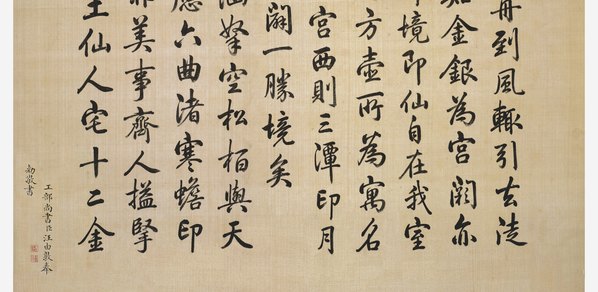 舟到風輒引去徒
知金銀為宮闕亦
即境即仙自在我室
方壺所為寓名
宮西則三潭印月
闢一勝境矣
涵拏空松柏與天
應六曲渚寒蟾印
非美事齊人搤掔
土仙人宅十二金
工部尚書臣汪由敦奉
勅敬書